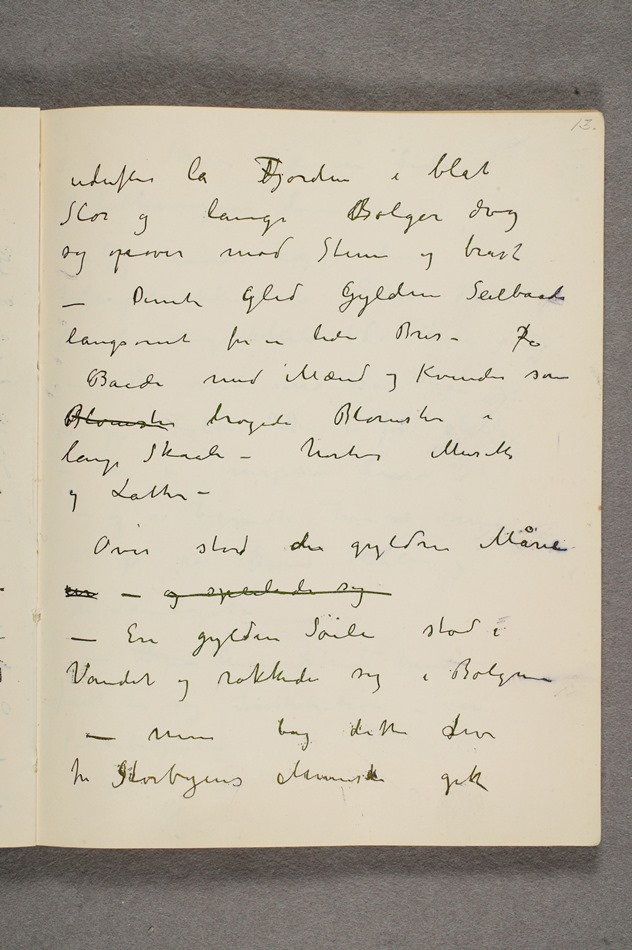 13.
udenfor la Fjorden i blåt
Stor og lange Bølger drog
sig opover mod Stenene og brast
— Gled Gyldne Seilbaade
langsomt for en liden Bris – Fra
Baade med Mænd og Kvinder som
Blomster brogede Blomster i
lange Skaale – hørtes Musik
og Latter –
Over stod den gyldne Måne
— og speilede sig
— En gylden Söile stod i
Vandet og rokkede sig i Bølgerne
— men bag dette
fra Storbyens Mennesker gik